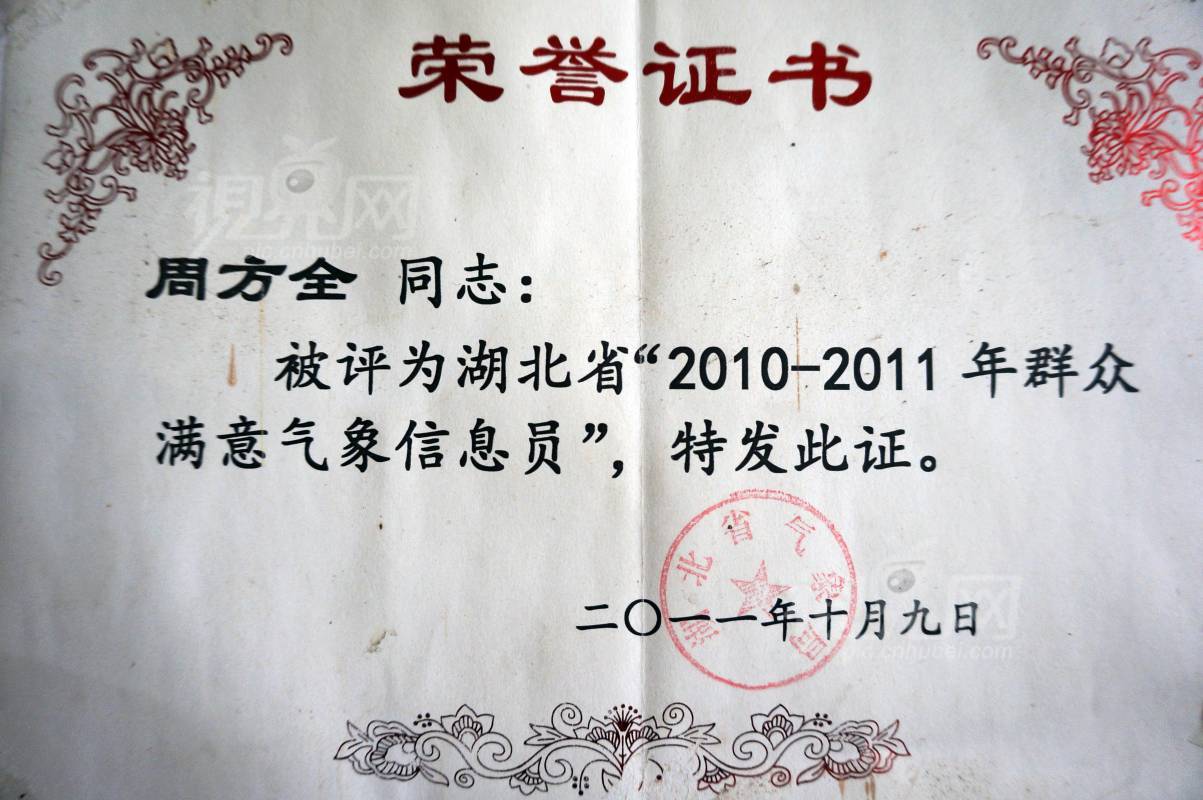 荣誉证书
視界网
pic.cnhubei.com
周方全 同志：
被评为湖北省“2010-2011 年群众
满意气象信息员”，特发此证。
湖北省气象局
二〇一一年十月九日
网
pic.cnhubei.com